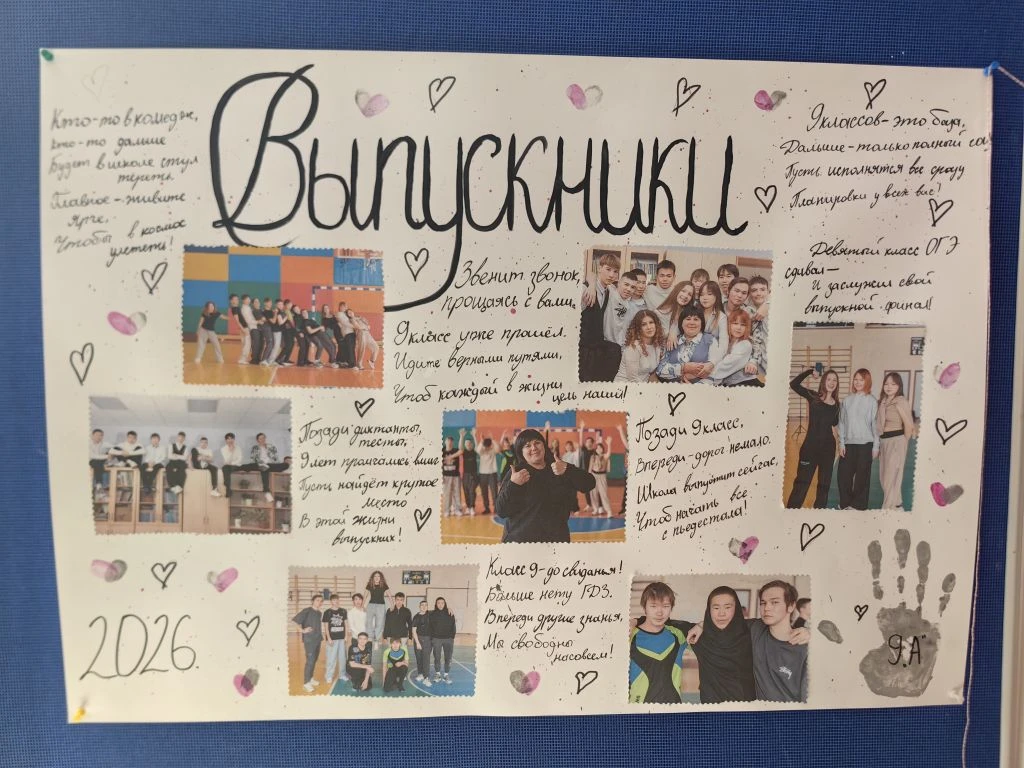 Выпускники
Кто-то в комедже,
кто-то дальше
Будет в школе стул
тереть.
Главное - живите
ярче,
Чтобы в космос
улететь!
9 классов - это база,
Дальше - только полный
Пусть исполнятся все сразу
Планировки у всех вас!
Девятый класс ОГЭ
сдавал -
И заслужил свой
выпускной финал!
Звенит звонок,
прощаясь с вами.
9 класс уже прошёл.
Идите верными путями,
Чтоб каждый в жизни
цель нашёл!
Позади диктанты,
тесты,
9 лет промчались вмиг
Пусть найдёт крутое
место
В этой жизни
выпускник!
Позади 9 класс,
Впереди - дорог немало.
Школа выпустит сейчас,
Чтоб начать все
с пьедестала!
Класс 9 - до свиданья!
Больше нету ГДЗ.
Впереди другие знанья,
Мы свободны
насовсем!
2026.
9 "А"